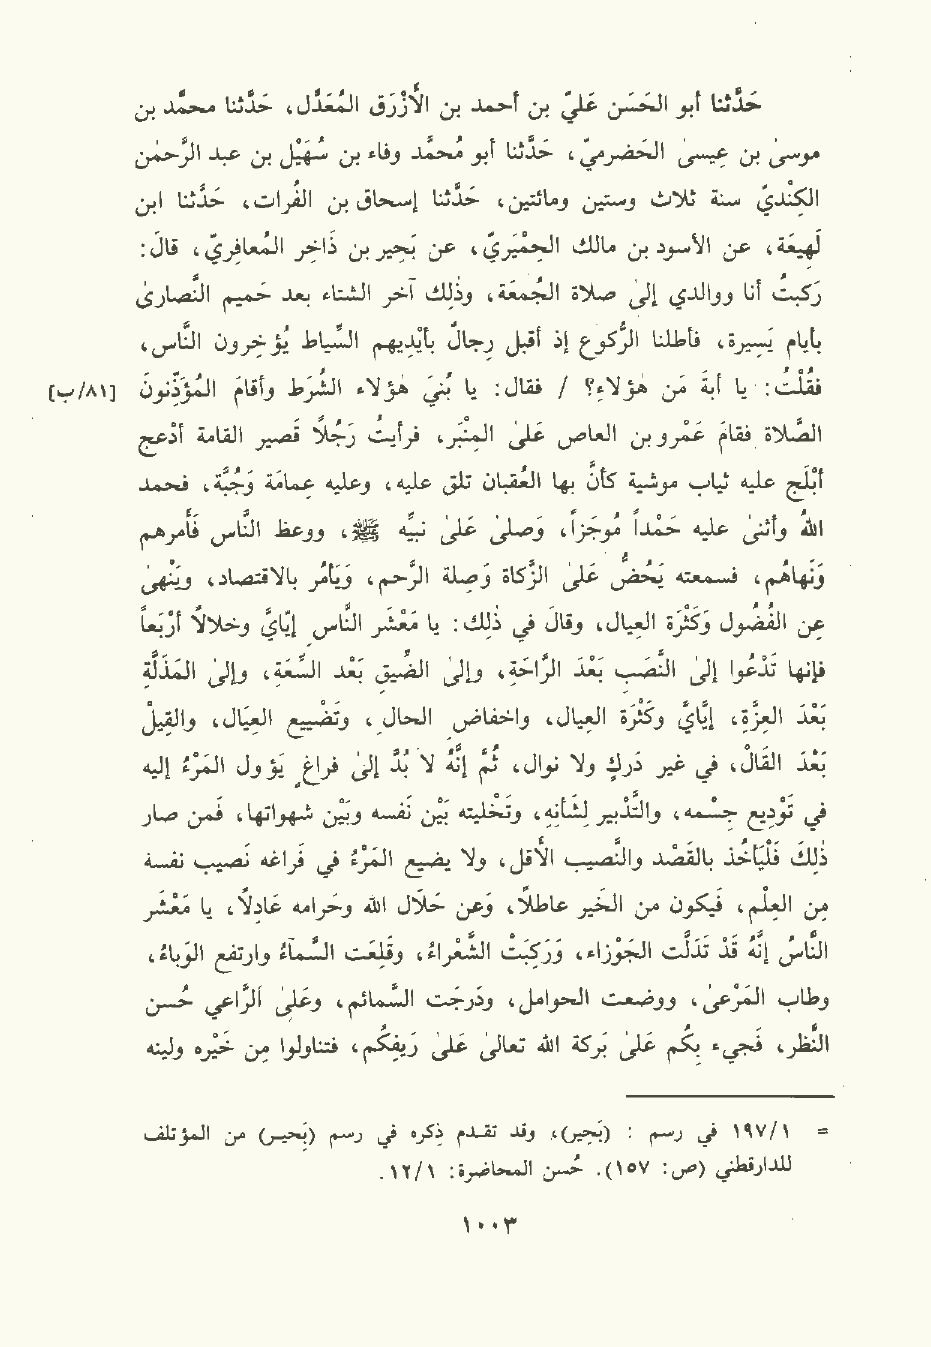 حَدَّثنا أبو الحَسَن عَليّ بن أحمد بن الأَزْرَق المُعَدَّل، حَدَّثنا محمَّد بن
موسىٰ بن عِيسىٰ الحَضرميّ، حَدَّثنا أبو مُحمَّد وفاء بن سُهَيْل بن عبد الرَّحمٰن
الكِنْديّ سنة ثلاث وستين ومائتين، حَدَّثنا إسحاق بن الفُرات، حَدَّثنا ابن
لَهِيعَة، عن الأسود بن مالك الحِمْيَريّ، عن بَحِير بن ذَاخِر المُعافِريّ، قالَ:
رَكبتُ أنا ووالدي إلىٰ صلاة الجُمعَة، وذلِك آخر الشتاء بعد حَميم النَّصارىٰ
بأيام يَسِيرة، فأطلنا الرُّكوع إذ أقبل رجالٌ بأيْدِيهم السِّياط يُؤخِّرون النَّاس،
فقُلْتُ: يا أبةَ مَن هؤلاءِ؟ / فقال: يا بُنيَ هؤلاء الشُرَط وأقامَ المُؤذِّنونَ [٨١/ب]
الصَّلاة فقامَ عَمْرو بن العاص علىٰ المِنْبَر، فرأيتُ رَجُلاً قَصير القامة أدعج
أبْلَج عليه ثياب موشية كأنَّ بها العُقبان تلق عليه، وعليه عِمامَة وَجُبَّة، فحمد
اللهُ وأثنىٰ عليه حَمْداً مُوجَزاً، وَصلىٰ عَلىٰ نبيِّه ﷺ، ووعظ النَّاس فَأمرهم
وَنَهاهُم، فسمعته يَحُضُّ عَلىٰ الزَّكاة وَصِلة الرَّحم، وَيَأمُر بالاقتصاد، ويَنْهىٰ
عن الفُضُول وَكَثرَة العِيال، وقالَ في ذلِك: يا مَعْشَر النَّاس إيَّايَّ وخلالاً أرْبَعاً
فإنها تَدْعُو إلىٰ النَّصَب بَعْدَ الرَّاحَة، وإلىٰ الضِّيق بَعْد السَّعَة، وإلىٰ المَذَلَّة
بَعْدَ العِزَّة، إيَّايَّ وَكَثْرَة العِيال، واخفاض الحال، وتَضْييع العِيَال، والقِيلْ
بَعْدَ القَالْ، في غير دَركٍ ولا نوال، ثُمَّ إنَّهُ لا بُدَّ إلىٰ فراغ يَؤول المَرْءُ إليه
في تَوْدِيع جِسْمه، والتَّدْبير لِشَأنِهِ، وتَخْليته بَيْن نَفسه وبَيْن شهواتها، فَمن صار
ذلِكَ فَلْيَأخُذ بالقَصْد والنَّصيب الأقل، ولا يضيع المَرْءُ في فَراغه نَصيب نفسه
من العِلْم، فَيكون من الخَير عاطلاً، وَعن حَلاَل الله وحَرامه عَادِلاً، يا مَعْشَر
النَّاسُ إنَّهُ قَدْ تَدَلَّت الجَوْزاء، وَرَكِبَتْ الشَّعْراءُ، وقَلِعَت السَّماءُ وارتفع الوَباءُ،
وطاب المَرْعىٰ، ووضعت الحوامل، ودَرجَت السَّمائم، وعَلىٰ الرَّاعي حُسن
النَّظر، فَجيء بِكُم عَلىٰ بَركة الله تعالىٰ عَلىٰ رَيفِكُم، فتناولوا مِن خَيْره ولينه
= ١٩٧/١ في رسم : (بَحِير)، وقد تقدم ذكره في رسم (بَحير) من المؤتلف
للدارقطني (ص: ١٥٧). حُسن المحاضرة: ١٢/١.
١٠٠٣